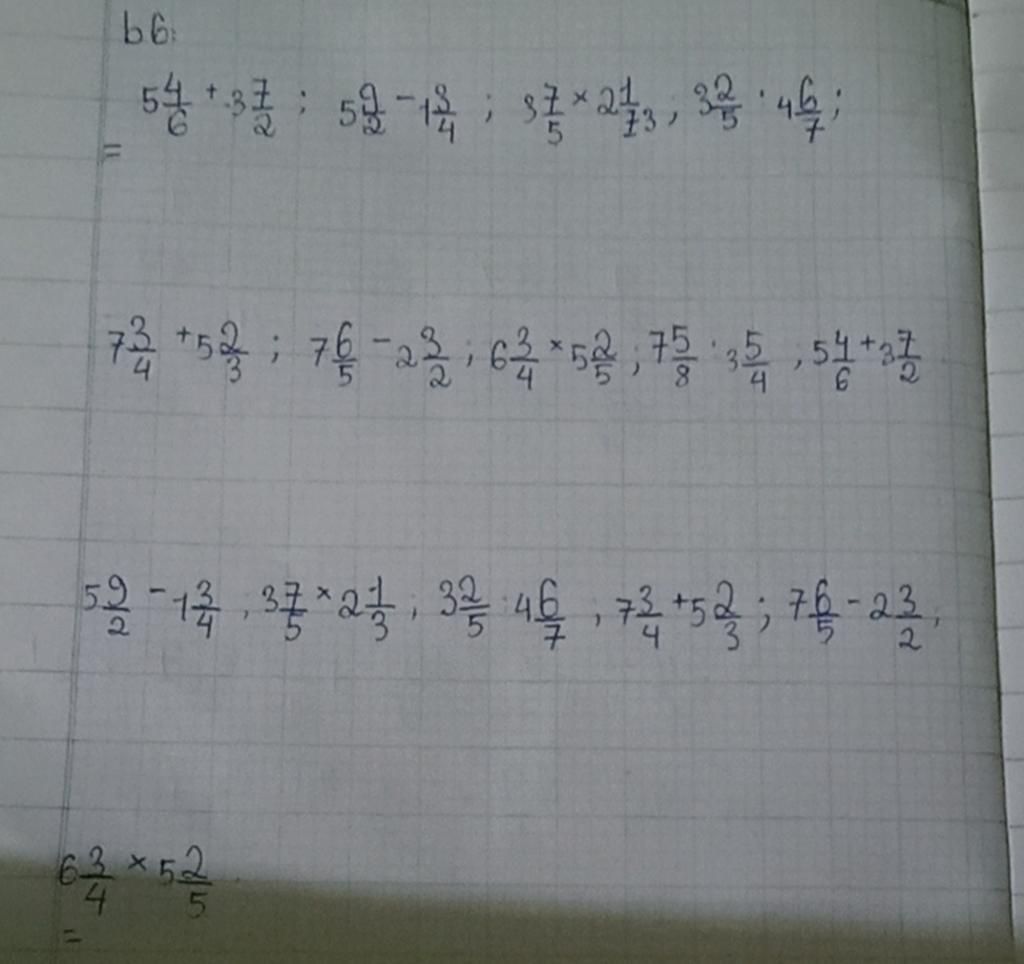 b6:
5 4/6 + 3 7/2 ; 5 9/2 - 1 3/4 ; 3 7/5 × 2 1/73 , 3 2/5 : 4 6/7 ;
=
7 3/4 + 5 2/3 ; 7 6/5 - 2 3/2 ; 6 3/4 × 5 2/5 ; 7 5/8 : 3 5/4 , 5 4/6 + 3 7/2
5 9/2 - 1 3/4 , 3 7/5 × 2 1/3 , 3 2/5 : 4 6/7 , 7 3/4 + 5 2/3 ; 7 6/5 - 2 3/2 ,
6 3/4 × 5 2/5
=